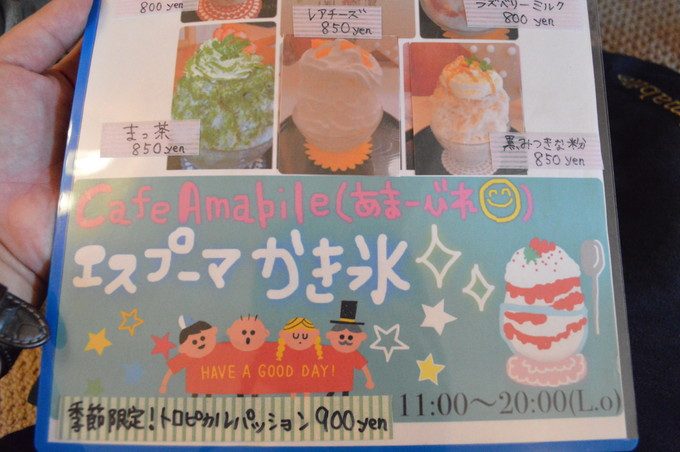 800 yen
レアチーズ
850yen
ラズベリーミルク
800 yen
まっ茶
850yen
黒みつきな粉
850yen
Cafe Amabile(あまーびれ)
エスプーマ かき氷
HAVE A GOOD DAY!
季節限定!トロピカルパッション 900yen
11:00〜20:00(L.o)